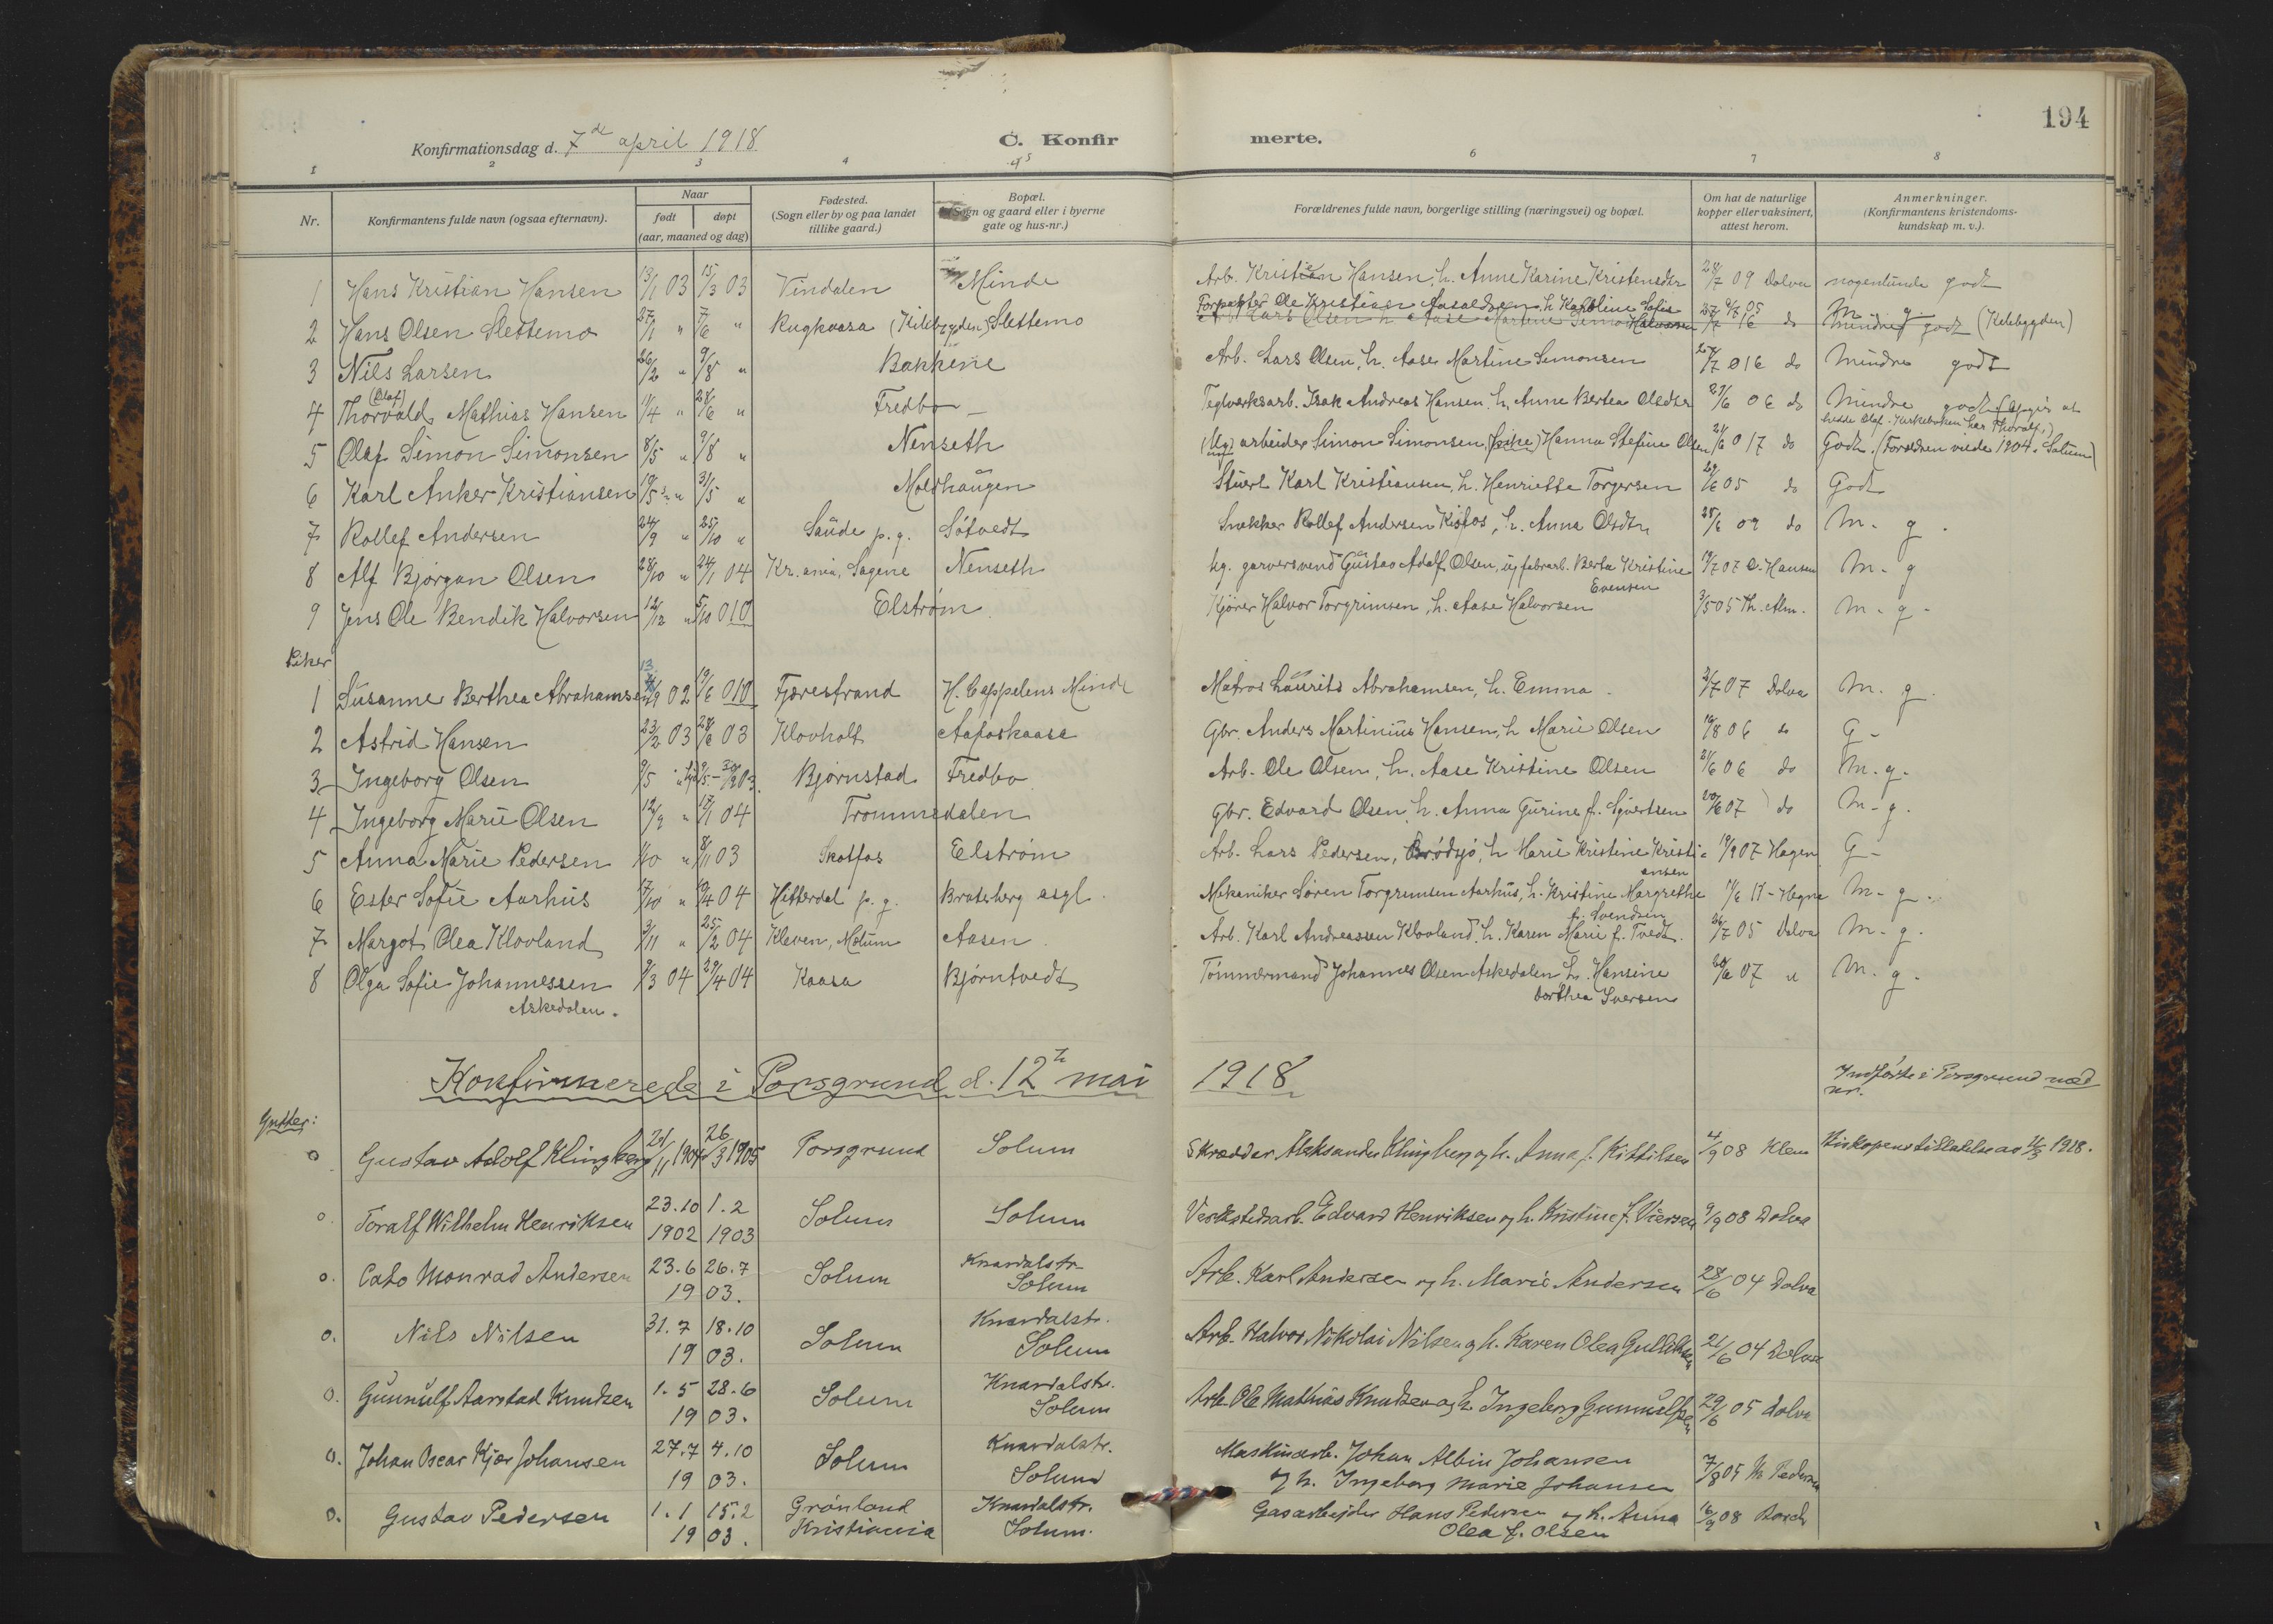 194
Konfirmationsdag d. 7de april 1918.
C. Konfir merte.
1 2 3 4 5 6 7 8
Nr. Konfirmantens fulde navn (ogsaa efternavn). Naar født døpt (aar, maaned og dag) Fødested. (Sogn eller by og paa landet tillike gaard.) Bopæl. (Sogn og gaard eller i byerne gate og hus-nr.) Forældrenes fulde navn, borgerlige stilling (næringsvei) og bopæl. Om hat de naturlige kopper eller vaksinert, attest herom. Anmerkninger. (Konfirmantens kristendoms-kundskap m. v.).
1 Hans Kristian Hansen 13/1 03 15/3 03 Vindalen Minde Arb. Kristian Hansen, h. Anne Karine Kristensdtr 28/7 09 Dolva nogenlunde godt
Forpagter Ole Kristian Aasoldsen h. Karoline Sofie Halvorsen 27/7 05 M g
2 Hans Olsen Slettemo 27/1 " 7/6 " Rugkaasa (Kilebygden) Slettemo Arb. Lars Olsen h. Aase Martine Simonsen 16 do mindre godt (Kilebygden)
3 Nils Larsen 26/2 " 9/8 " Bakkene Arb. Lars Olsen, h. Aase Martine Simonsen 27/7 016 do Mindre godt
4 Thorvald (Olaf) Mathias Hansen 11/4 " 28/6 " Fredbo Teglverksarb. Isak Andreas Hansen, h. Anne Bertea Olsdtr 27/6 06 do Mindre godt (Opgir at hedde Olaf. Kirkeboken har Thoralf.)
5 Olaf Simon Simonsen 8/5 " 9/8 " Nenseth (Ug) arbeider Simon Simonsen, (pike) Hanna Stefine Olsen 21/6 017 do Godt. (Forældren viede 1904. Solum)
6 Karl Anker Kristiansen 19/5 " 31/5 " Moldhaugen Stuert Karl Kristiansen, h. Henriette Torgersen 29/6 05 do Godt
7 Rollef Andersen 24/9 " 25/10 " Saude p. g. Søtvedt Snekker Rollef Andersen Kisfos, h. Anna Olsdtr 25/6 09 do M. g.
8 Alf Bjørgan Olsen 28/10 " 24/1 04 Kr.ania, Sagene Nenseth Ug. garversvend Gustav Adolf Olsen, ug fabrarb. Berta Kristine Evensen 19/7 07 O. Hansen M. g
9 Jens Ole Bendik Halvorsen 12/12 " 5/10 010 Elstrøm Kjører Halvor Torgrimsen, h. Aase Halvorsen 3/5 05 Th. Alm. M. g.
Piker
1 Susanne Berthea Abrahamsen 13/9 02 19/6 010 Fjærestrand H. Cappelens Minde Matros Laurits Abrahamsen, h. Emma. 3/7 07 Dolva M. g.
2 Astrid Hansen 23/2 03 28/6 03 Klovholt Aafoskaasa Gbr. Anders Martinius Hansen, h. Marie Olsen 19/8 06 do G -
3 Ingeborg Olsen 9/5 " Bjørnstad Fredbo Arb. Ole Olsen, h. Aase Kristine Olsen 21/6 06 do M. g.
4 Ingeborg Marie Olsen 12/9 " 17/1 04 Trommedalen Gbr. Edvard Olsen, h. Anna Gurine f. Syvertsen 20/6 07 do M. g.
5 Anna Marie Pedersen 1/10 " 8/11 03 Skotfos Elstrøm Arb. Lars Pedersen, Brødsjø, h. Marie Kristine Kristiansen 19/9 07 Hagen G -
6 Ester Sofie Aarhus 17/10 " 10/4 04 Hitterdal p. g. Bratsberg asgl. Mekaniker Søren Torgrimsen Aarhus, h. Kristine Margrethe f. Svendsen 11/6 11 - Hegna M. g.
7 Margot Olea Klovland 3/11 " 25/2 04 Kleven, Mælum Aasen Arb. Karl Andreassen Klovland, h. Karen Marie f. Tvedt. 26/7 05 Dolva M. g.
8 Olga Sofie Johannessen Askedalen. 9/3 04 29/4 04 Kaasa Bjørntvedt Tømmermand Johannes Olsen Askedalen h. Hansine Dorthea Iversen 20/6 07 " M. g.
Konfirmerede i Porsgrund d. 12te mai 1918 Indførte i Porsgrund med nr.
Gutter:
o Gustav Adolf Klingberg 21/11 1904 26/3 1905 Porsgrund Solum Skrædder Aleksander Klingberg og h. Anna f. Kittilsen 4/9 08 Klem Biskopens tillatelse av 11/3 1918.
o Toralf Wilhelm Henriksen 23.10 1902 1.2 1903 Solum Solum Verkstedsarb. Edvard Henriksen og h. Kristine f. Iversen 9/9 08 Dolva
o. Cato Monrad Andersen 23.6 26.7 1903. Solum Knardalstr. Solum Arb. Karl Andersen og h. Marie Andersen 28/6 04 Dolva
o. Nils Nilsen 31.7 18.10 1903. Solum Knardalstr. Solum Arb. Halvor Nikolai Nilsen og h. Karen Olea Gulliksen 21/6 04 Dolva
o. Gunnulf Aarstad Knudsen 1.5 28.6 1903. Solum Knardalstr. Solum Arb. Ole Mathias Knudsen og h. Ingeborg Gunnulfsen 29/6 05 Dolva
o. Johan Oscar Kjær Johansen 27.7 4.10 1903. Solum Knardalstr. Solum Maskinarb. Johan Albin Johansen og h. Ingeborg Marie Johansen 7/8 05 Pedersen
o. Gustav Pedersen 1.1 15.2 1903. Grønland Kristiania Knardalstr. Solum. Gasarbejder Hans Pedersen og h. Anna Olea f. Olsen 16/9 08